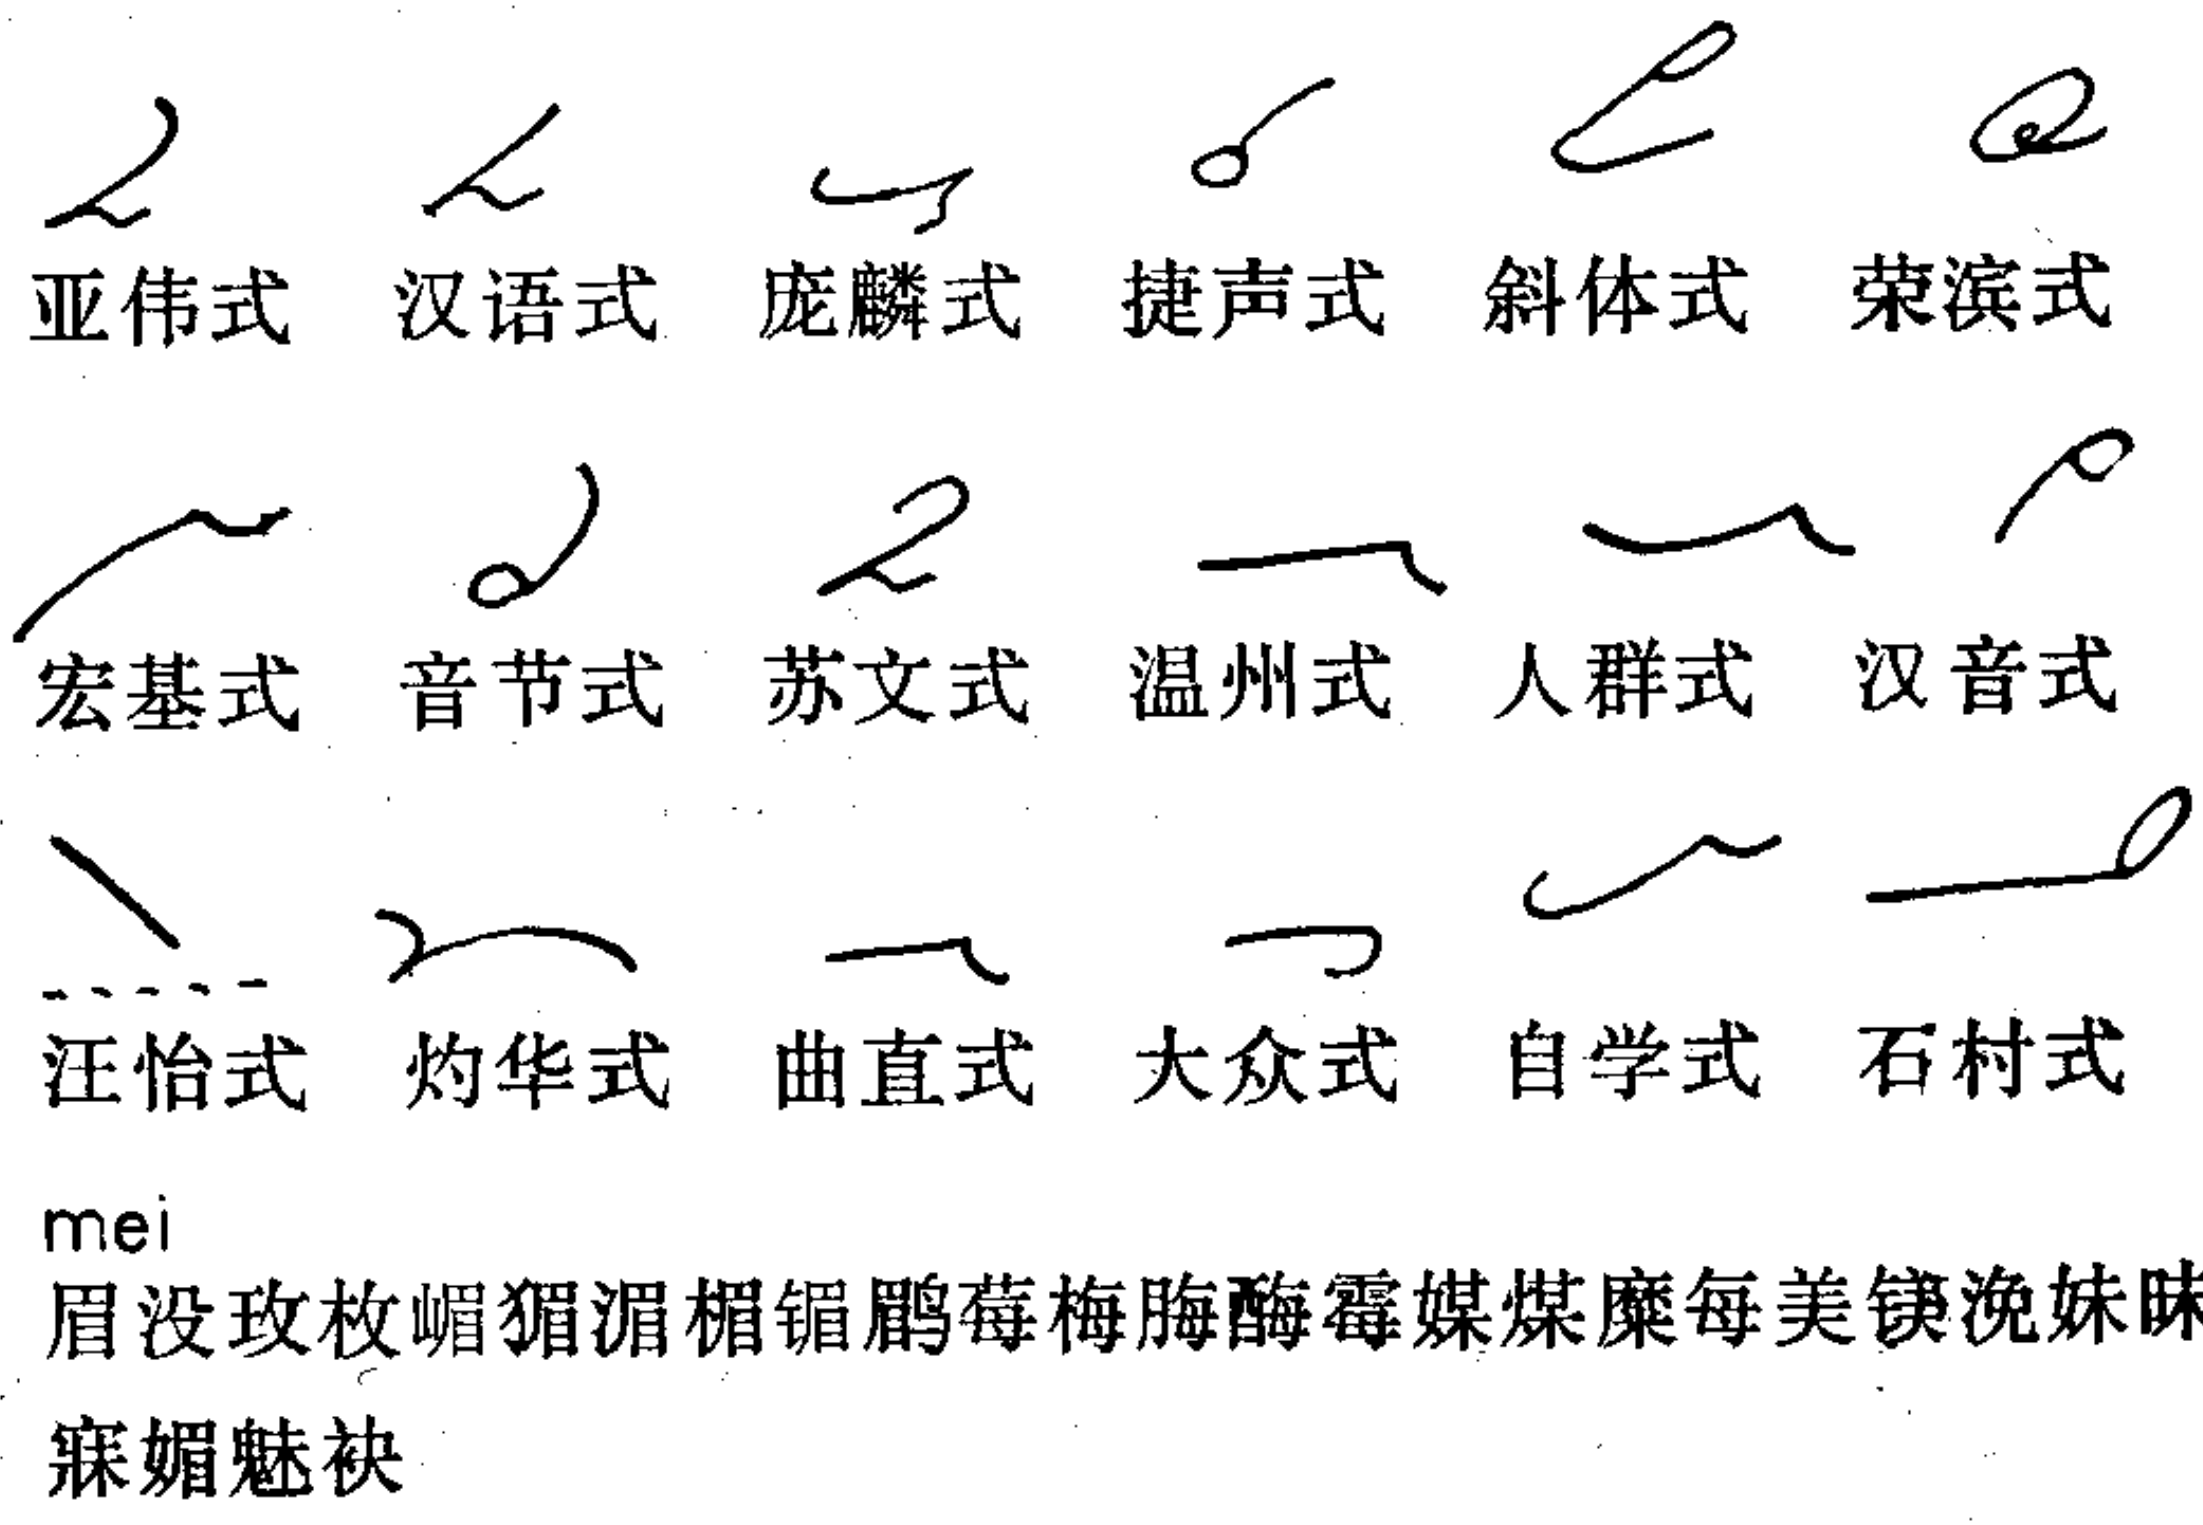 亚伟式 汉语式 庞麟式 捷声式 斜体式 荣滨式
宏基式 音节式 苏文式 温州式 人群式 汉音式
汪怡式 灼华式 曲直式 大众式 自学式 石村式
mei
眉没玫枚嵋猸湄楣镅鹛莓梅脢酶霉媒煤糜每美镁浼妹昧
寐媚魅袂